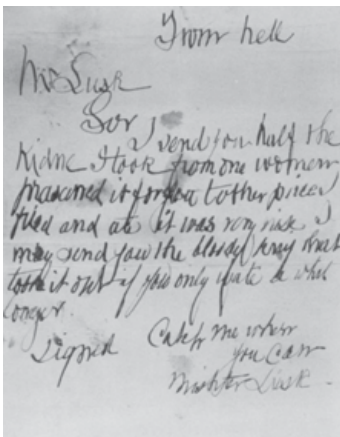 From hell
Mr Lusk
Sor
I send you half the
Kidne I took from one women
prasarved it for you tother piece I
fried and ate it was very nise I
may send you the bloody knif that
took it out if you only wate a whil
longer.
Signed
Catch me when
you can
Mishter Lusk.